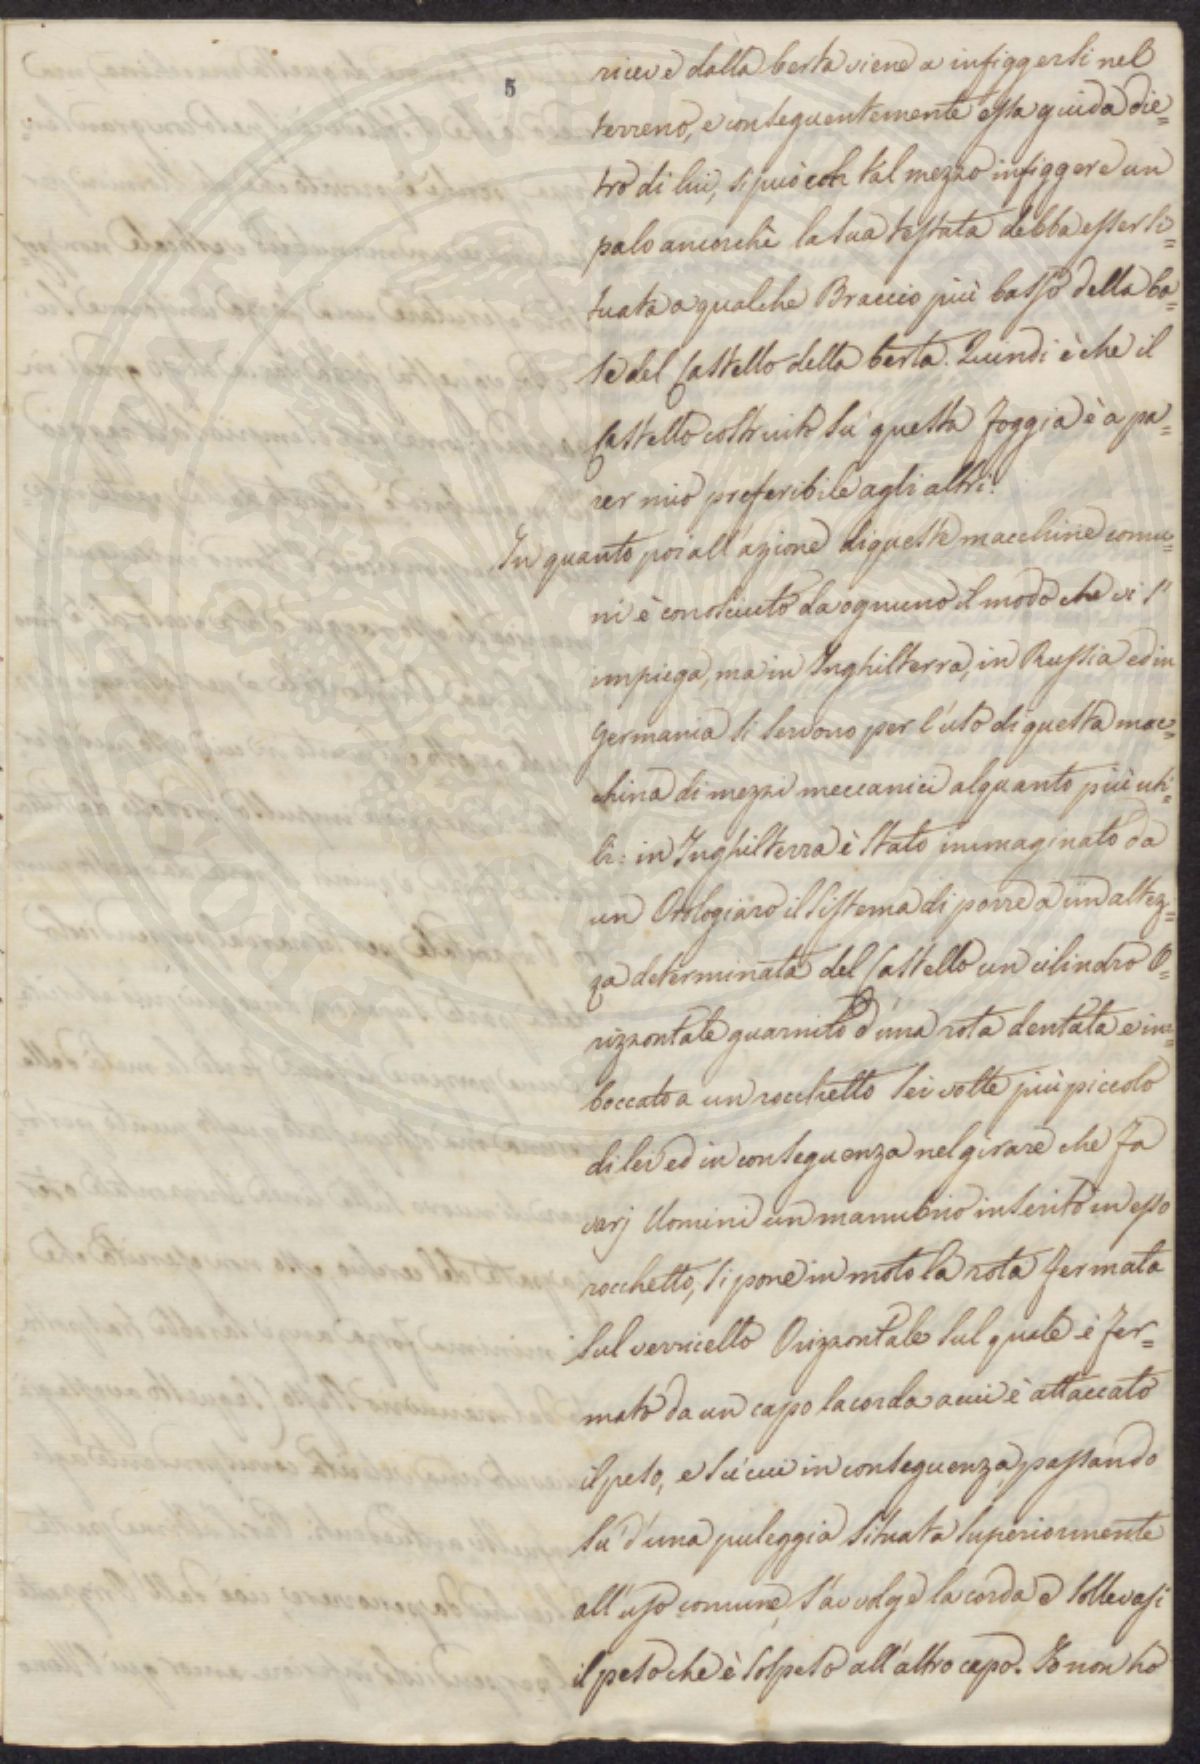 5
riceve dalla berta viene a infiggersi nel
terreno, e conseguentemente essa guida die=
tro di lui, si può con tal mezzo infiggere un
palo ancorchè la sua testata debba esser si=
tuata a qualche Braccio più basso della ba=
se del Castello della berta. Quindi è che il
Castello costruito su questa foggia è a pa=
rer mio preferibile agli altri.
In quanto poi all'azione di queste macchine comu=
ni è conosciuto da ognuno il modo che vi s'
impiega, ma in Inghilterra, in Russia ed in
Germania si servono per l'uso di questa mac=
china di mezzi meccanici alquanto più uti=
li: in Inghilterra è stato immaginato da
un Orologiaro il sistema di porre a un altez=
za determinata del Castello un cilindro O=
rizzontale guarnito d'una rota dentata e im=
boccato a un rocchetto sei volte più piccolo
di lei ed in conseguenza nel girare che fa
varj Uomini un manubrio inserito in esso
rocchetto, si pone in moto la rota fermata
sul verricello Orizzontale sul quale è fer=
mato da un capo la corda a cui è attaccato
il peso, e su cui in conseguenza, passando
su d'una puleggia situata superiormente
all'uso comune, s'avvolge la corda e sollevasi
il peso che è sospeso all'altro capo. Io non ho